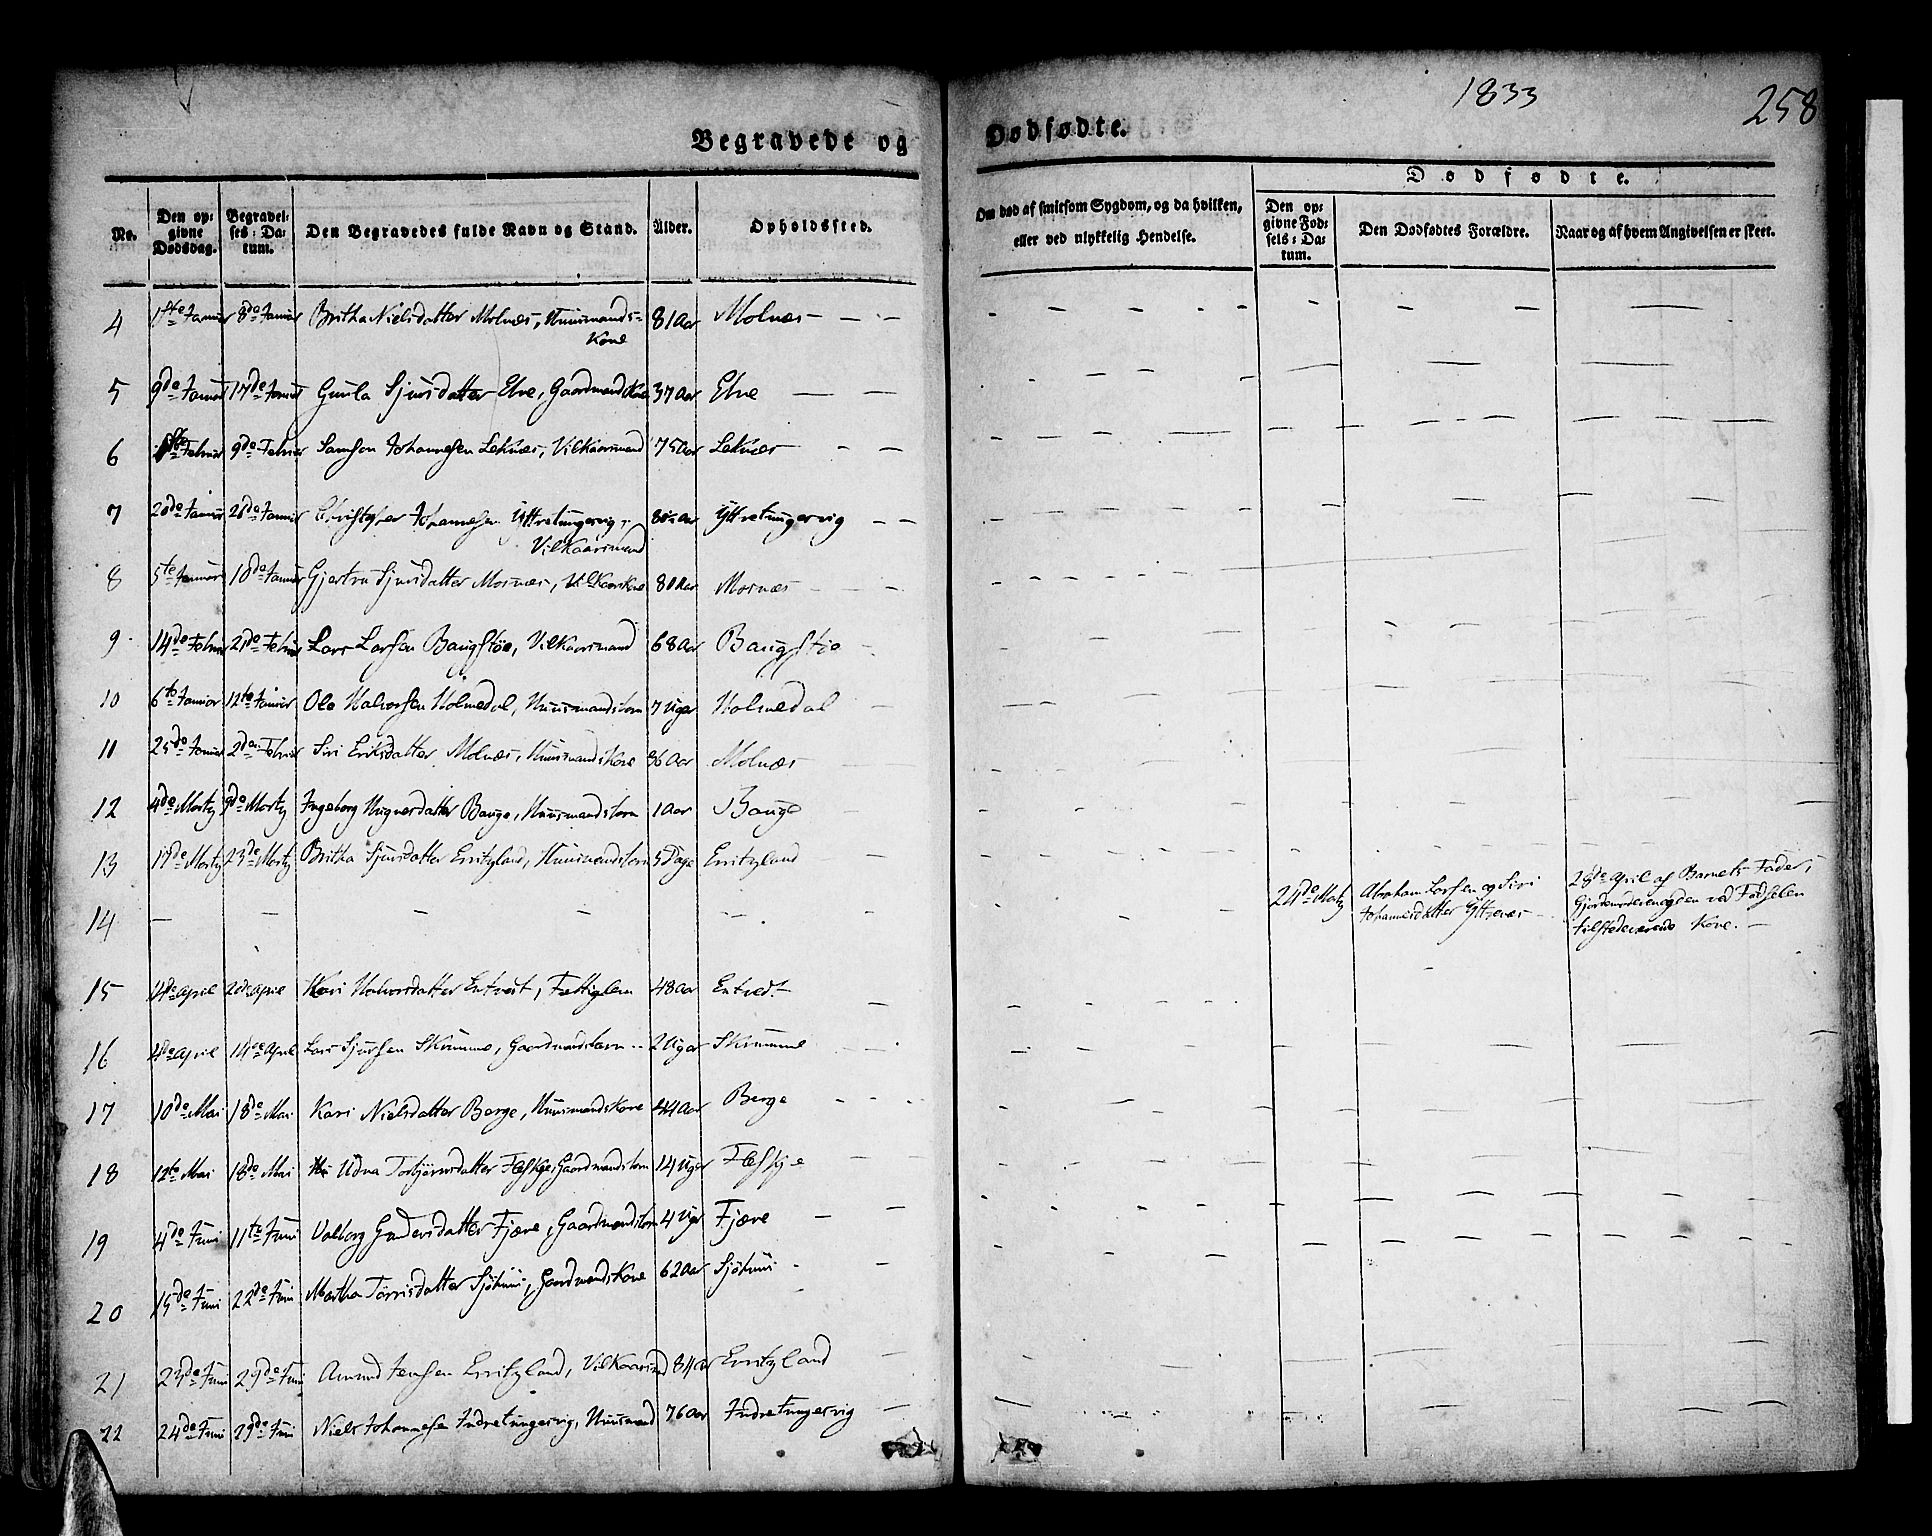 1833
258
Begravede og Dødfødte.
No.
Den opgivne Dødsdag.
Begravelses-Datum.
Den Begravedes fulde Navn og Stand.
Alder.
Opholdssted.
Om død af smitsom Sygdom, og da hvilken, eller ved ulykkelig Hendelse.
Dødfødte.
Den opgivne Fødsels-Datum.
Den Dødfødtes Forældre.
Naar og af hvem Angivelsen er skeet.
4 1ste Januar 8de Januar Britha Nielsdatter Molnæs, Huusmands-Kone 81 Aar Molnæs
5 9de Januar 17de Januar Gunla Sjursdatter Elve, Gaardmands Kone 37 Aar Elve
6 Februar 9de Februar Samson Johannesen Leknæs, Vilkaarsmand 75 Aar Leknæs
7 20de Januar 26de Januar Christopher Johannesen Yttretungesvig, Vilkaarsmand Aar Yttretungesvig
8 5te Januar 10de Januar Gjertru Sjursdatter Mosnæs, Vilkaarskone 80 Aar Mosnæs
9 14de Februar 21de Februar Lars Larsen Baugstøe, Vilkaarsmand 68 Aar Baugstøe
10 6te Januar 12te Januar Ole Halvorsen Holmedal, Huusmandsbarn 7 Uger Holmedal
11 25de Januar 2den Februar Siri Eriksdatter Molnæs, Huusmands Kone 36 Aar Molnæs
12 4de Martz 9de Martz Ingeborg Magnesdatter Bauge, Huusmandsbarn 1 Aar Bauge
13 19de Martz 23de Martz Britha Sjursdatter Erritzland, Huusmandsbarn 5 Dage Erritzland
14 21de Martz Abraham Larsen og Siri Johannesdatter Yttrevær 28de April af Barnets Fader, Gjordemoderen og den ved Fødselen tilstedeværende Kone.
15 14de April 20de April Kari Halvorsdatter Entvet, Fattiglem 48 Aar Entvedt
16 4de April 14de April Lars Sjursen Skrumme, Gaardmandsbarn 2 Uger Skrumme
17 10de Mai 18de Mai Kari Nielsdatter Berge, Huusmands Kone 44 Aar Berge
18 12te Mai 18de Mai Udna Torbjørnsdatter Flæskje, Gaardmandsbarn 14 Uger Flæskje
19 4de Juni 11te Juni Valborg Gudersdatter Fjære, Gaardmandsbarn 4 Uger Fjære
20 15de Juni 22de Juni Martha Torrisdatter Sjøtuun, Gaardmandskone 62 Aar Sjøtuun
21 23de Juni 29de Juni Amund Jensen Erritzland, Vilkaarsmd 84 Aar Erritzland
22 24de Juni 29de Juni Niels Johannesen Indretungesvig, Huusmand 76 Aar Indretungesvig